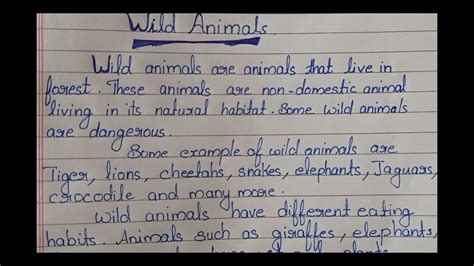 Wild Animals.
Wild animals are animals that live in
forest. These animals are non-domestic animal
living in its natural habitat. Some wild animals
are dangerous.
Some example of wild animals are
Tiger, lions, cheetahs, snakes, elephants, Jaguars,
crocodile and many more.
Wild animals have different eating
habits. Animals such as giraffes, elephants,